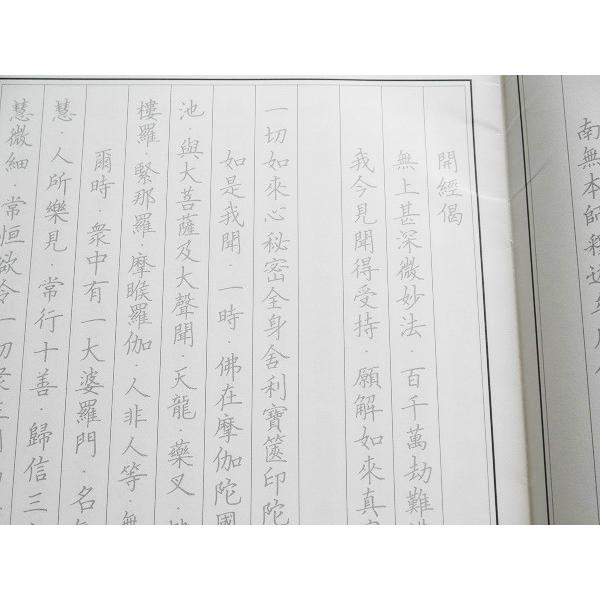 南無本師釋迦牟尼
開經偈
無上甚深微妙法．百千萬劫難
我今見聞得受持．願解如來真
一切如來心秘密全身舍利寶篋印陀
如是我聞．一時．佛在摩伽陀國
池．與大菩薩及大聲聞．天龍．藥叉．
樓羅．緊那羅．摩睺羅伽．人非人等．無
爾時．衆中有一大婆羅門．名
慧．人所樂見．常行十善．歸信三
慧微細．常恒欲令一切衆生